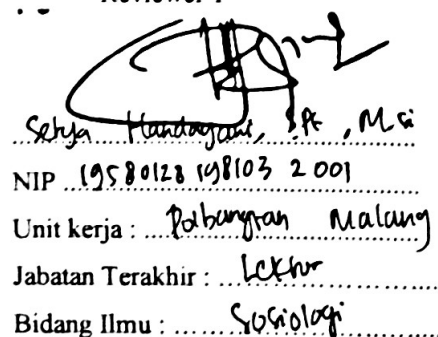 Setya Handayani, S.Pt, M.Si
NIP 19580128 198103 2 001
Unit kerja : Polbangtan Malang
Jabatan Terakhir : Lektor
Bidang Ilmu : Sosiologi